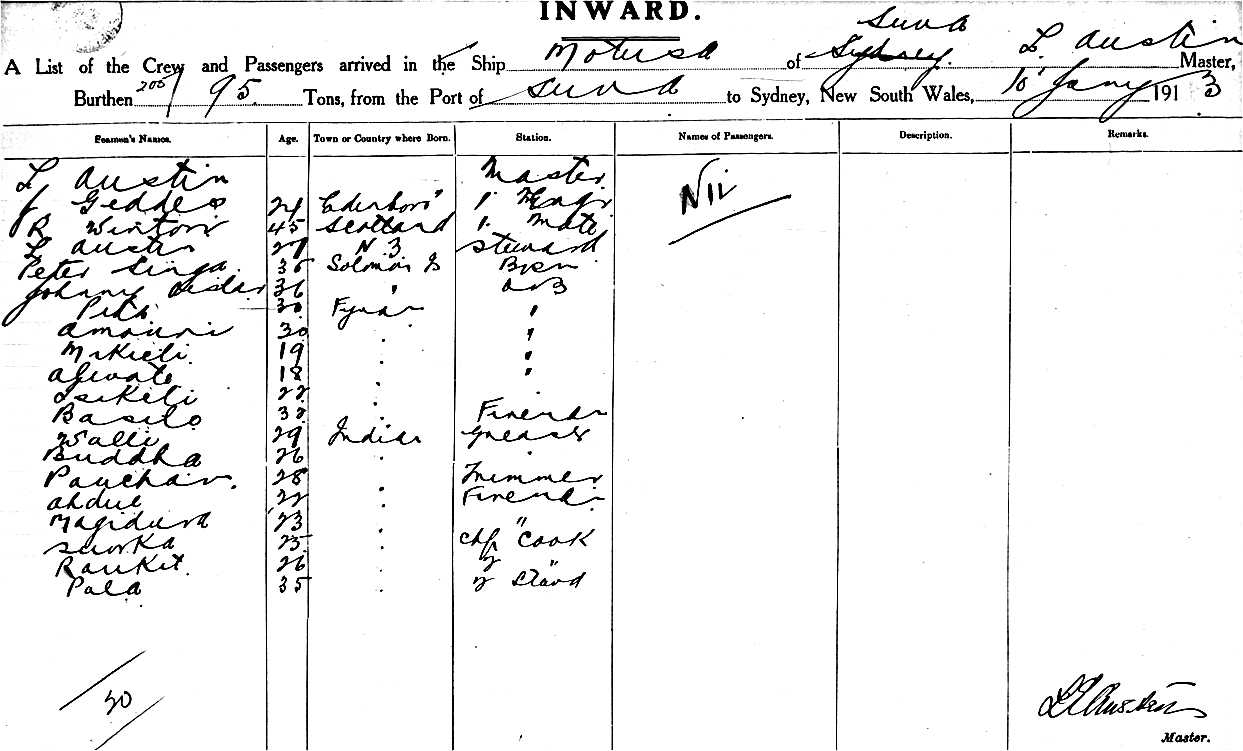 INWARD.
Suva
A List of the Crew and Passengers arrived in the Ship Motusa of Sydney. L Austin Master,
Burthen 205/95. Tons, from the Port of Suva to Sydney, New South Wales, 10 Jany 1913
Seamen's Names. Age. Town or Country where Born. Station. Names of Passengers. Description. Remarks.
L Austin Master Nil
J Geddes 24 Edenboro' 1. Engr
R Winton 45 Scotland 1. Mate
L Austin 27 N Z Steward
Peter Singa 36 Solomon Is Bosn
Johnny 36 " A B
Pita 30 Fijian "
Amouri 30 . "
Mikieli 19 . "
18 . "
Isikeli 22 .
Basilo 32 . Fireman
Walli 29 Indian Greaser
Buddha 26 . .
Panchar. 28 . Trimmer
Abdul 22 . Fireman
Magidura 23 . "
Suorka 25 . Chf Cook
Raukit. 26 . 2 "
Pala 35 . 2 Stewd
20
L Austin
Master.